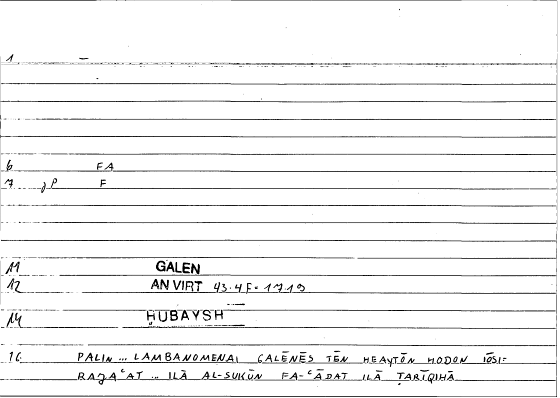 1 –
6 FA
7 jP F
11 GALEN
12 AN VIRT 43.4F-1719
14 ḤUBAYSH
16 PALIN ... LAMBANOMENAI GALĒNĒS TĒN HEAYTŌN HODON IŌSI=
RAǦAʿAT ... ILĀ AL-SUKŪN FA-ʿĀDAT ILĀ ṬARĪQIHĀ